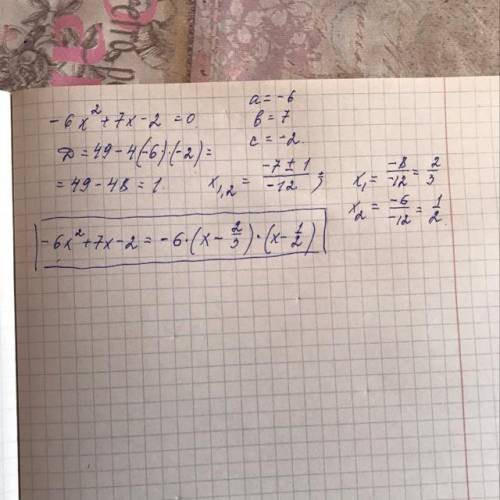 -6x² + 7x - 2 = 0
a = -6
b = 7
c = -2.
D = 49 - 4(-6)·(-2) =
= 49 - 48 = 1.
x₁,₂ = (-7 ± 1)/(-12) ;
x₁ = -8/-12 = 2/3
x₂ = -6/-12 = 1/2.
-6x² + 7x - 2 = -6·(x - 2/3)·(x - 1/2)